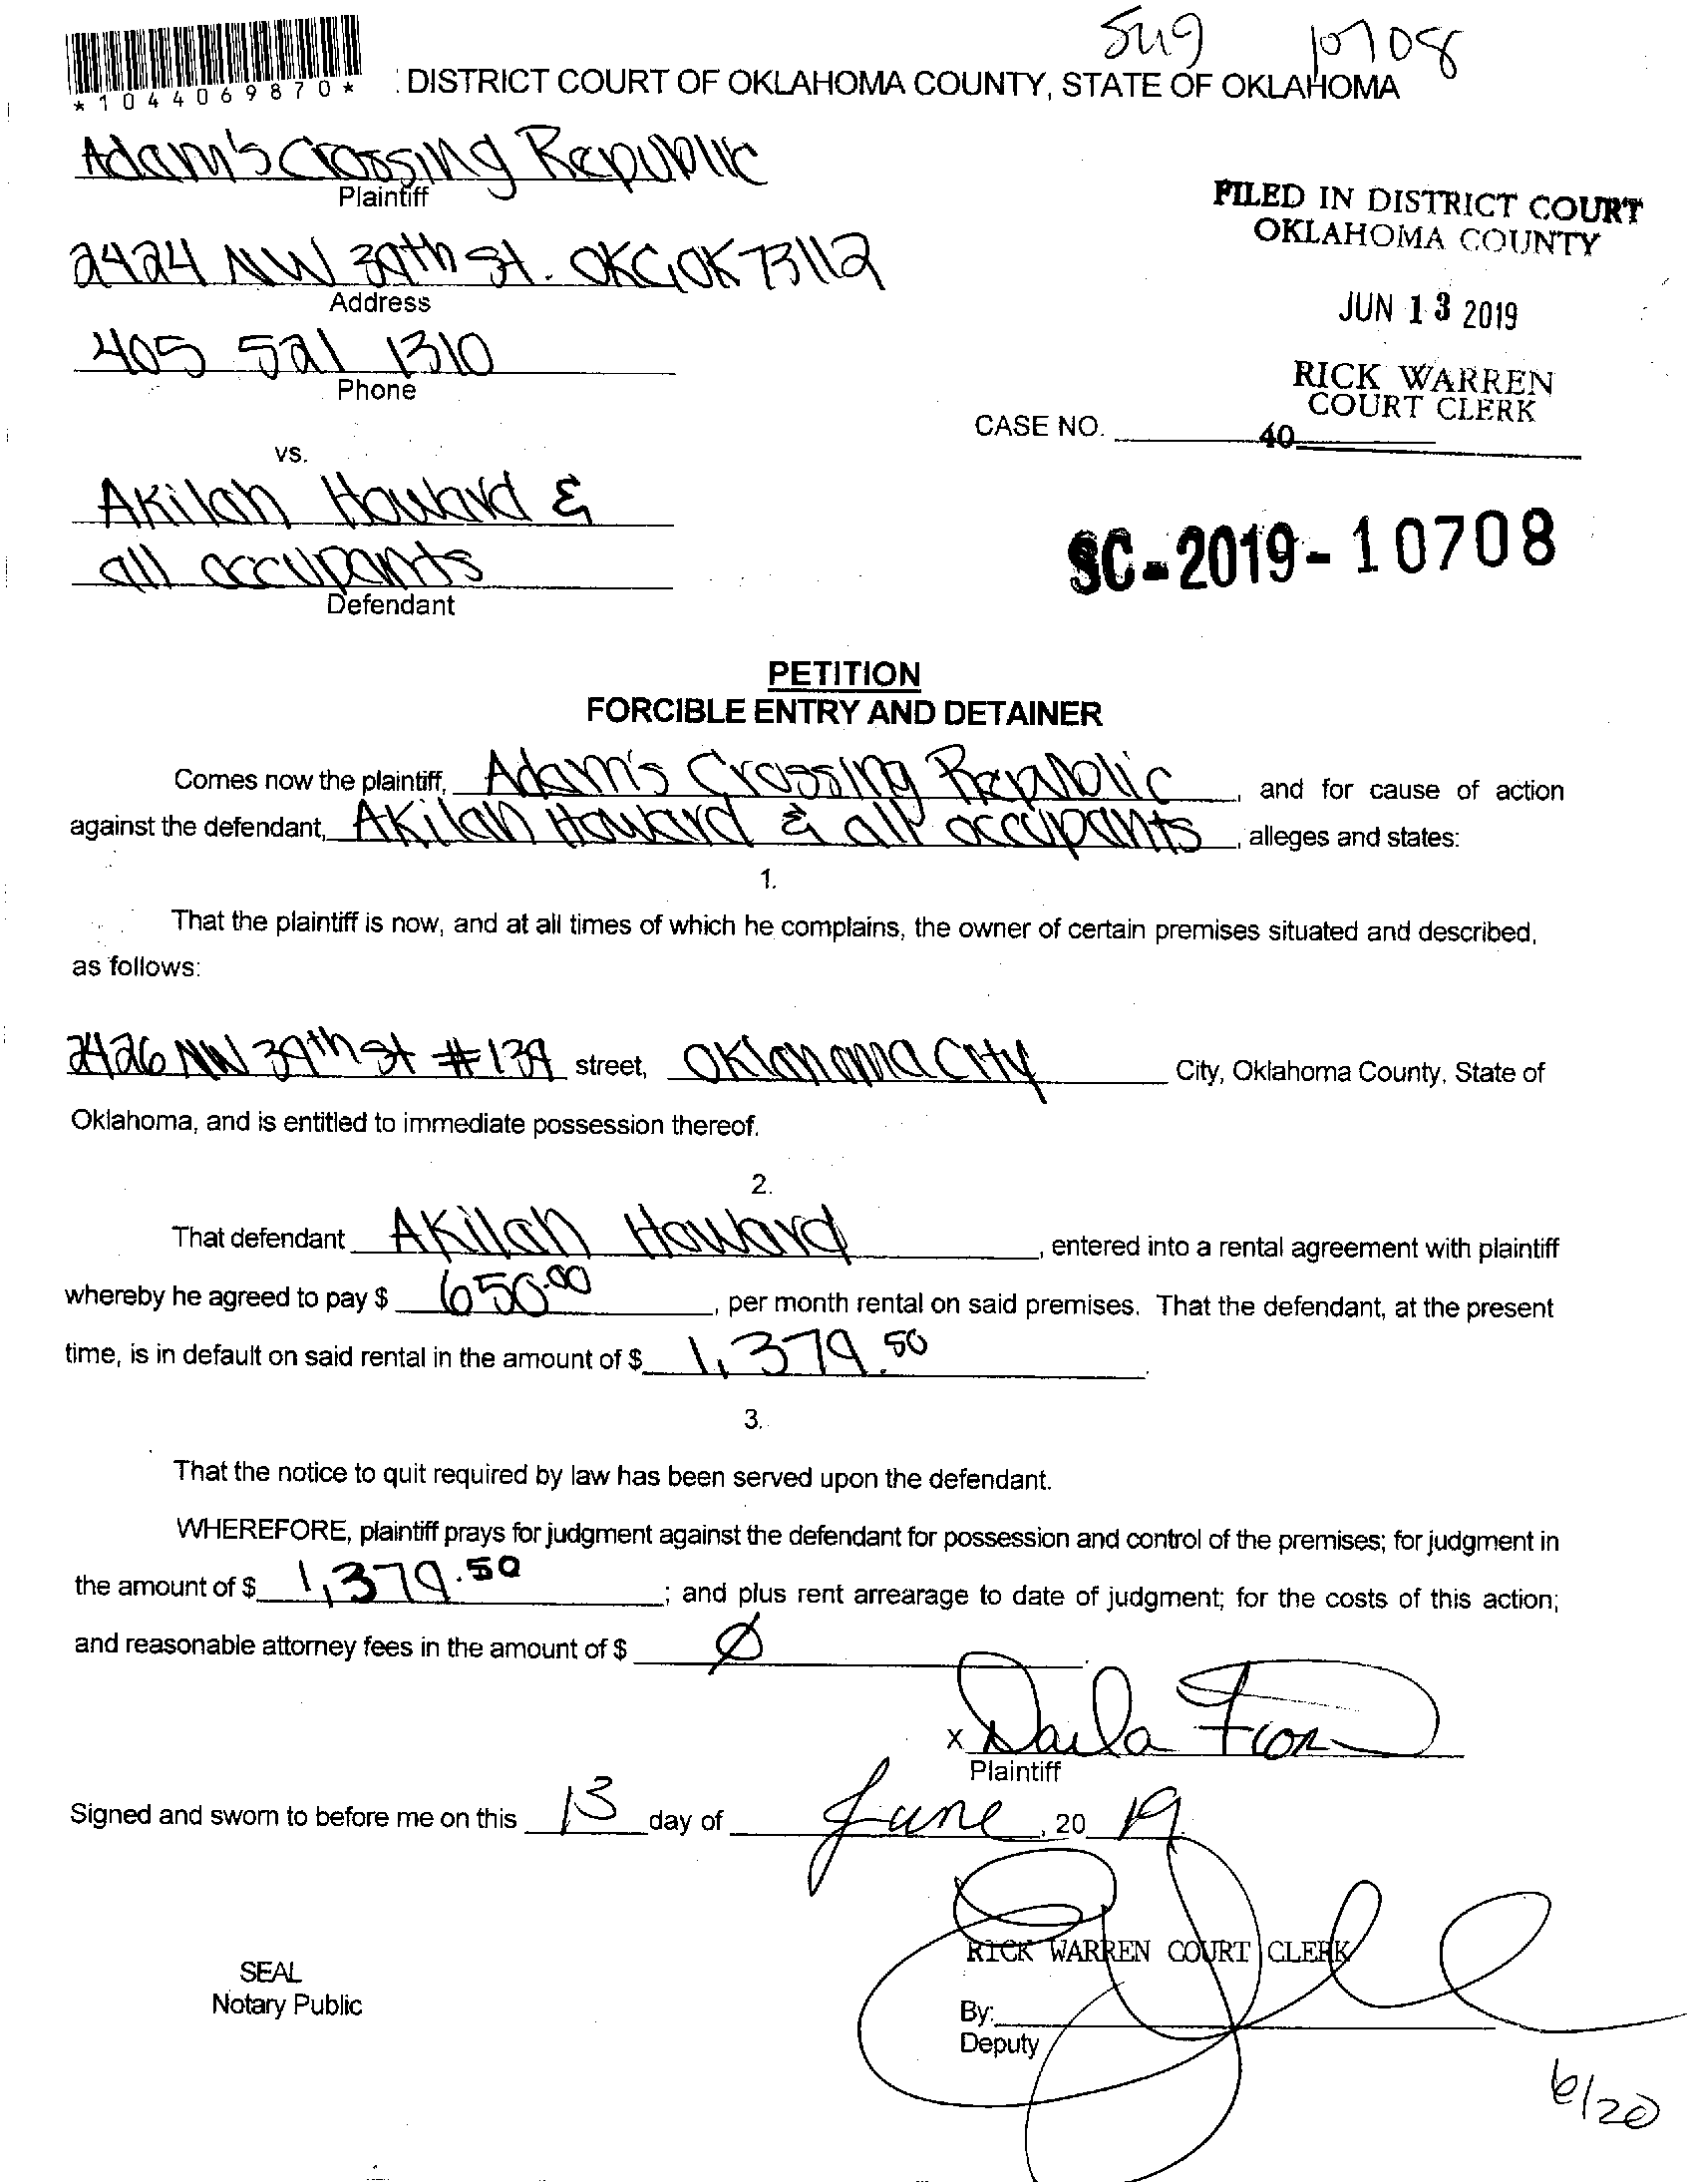 10708
*1044069870*
DISTRICT COURT OF OKLAHOMA COUNTY, STATE OF OKLAHOMA
Adam's Crossing Republic
Plaintiff
FILED IN DISTRICT COURT
OKLAHOMA COUNTY
2424 NW 39th St. OKC, OK 73112
Address
JUN 13 2019
405 521 1310
Phone
RICK WARREN
COURT CLERK
CASE NO.
40
vs.
Akilah Howard &
all occupants
Defendant
SC-2019-10708
PETITION
FORCIBLE ENTRY AND DETAINER
Comes now the plaintiff, Adam's Crossing Republic, and for cause of action
against the defendant, Akilah Howard & all occupants, alleges and states:
1.
That the plaintiff is now, and at all times of which he complains, the owner of certain premises situated and described,
as follows:
2426 NW 39th St #139 street, Oklahoma City City, Oklahoma County, State of
Oklahoma, and is entitled to immediate possession thereof.
2.
That defendant Akilah Howard, entered into a rental agreement with plaintiff
whereby he agreed to pay $ 650.00, per month rental on said premises. That the defendant, at the present
time, is in default on said rental in the amount of $ 1,379.50.
3.
That the notice to quit required by law has been served upon the defendant.
WHEREFORE, plaintiff prays for judgment against the defendant for possession and control of the premises; for judgment in
the amount of $ 1,379.50; and plus rent arrearage to date of judgment; for the costs of this action;
and reasonable attorney fees in the amount of $ Ø
X
Plaintiff
Signed and sworn to before me on this 13 day of June, 20 19
RICK WARREN COURT CLERK
SEAL
Notary Public
By:
Deputy
6/20